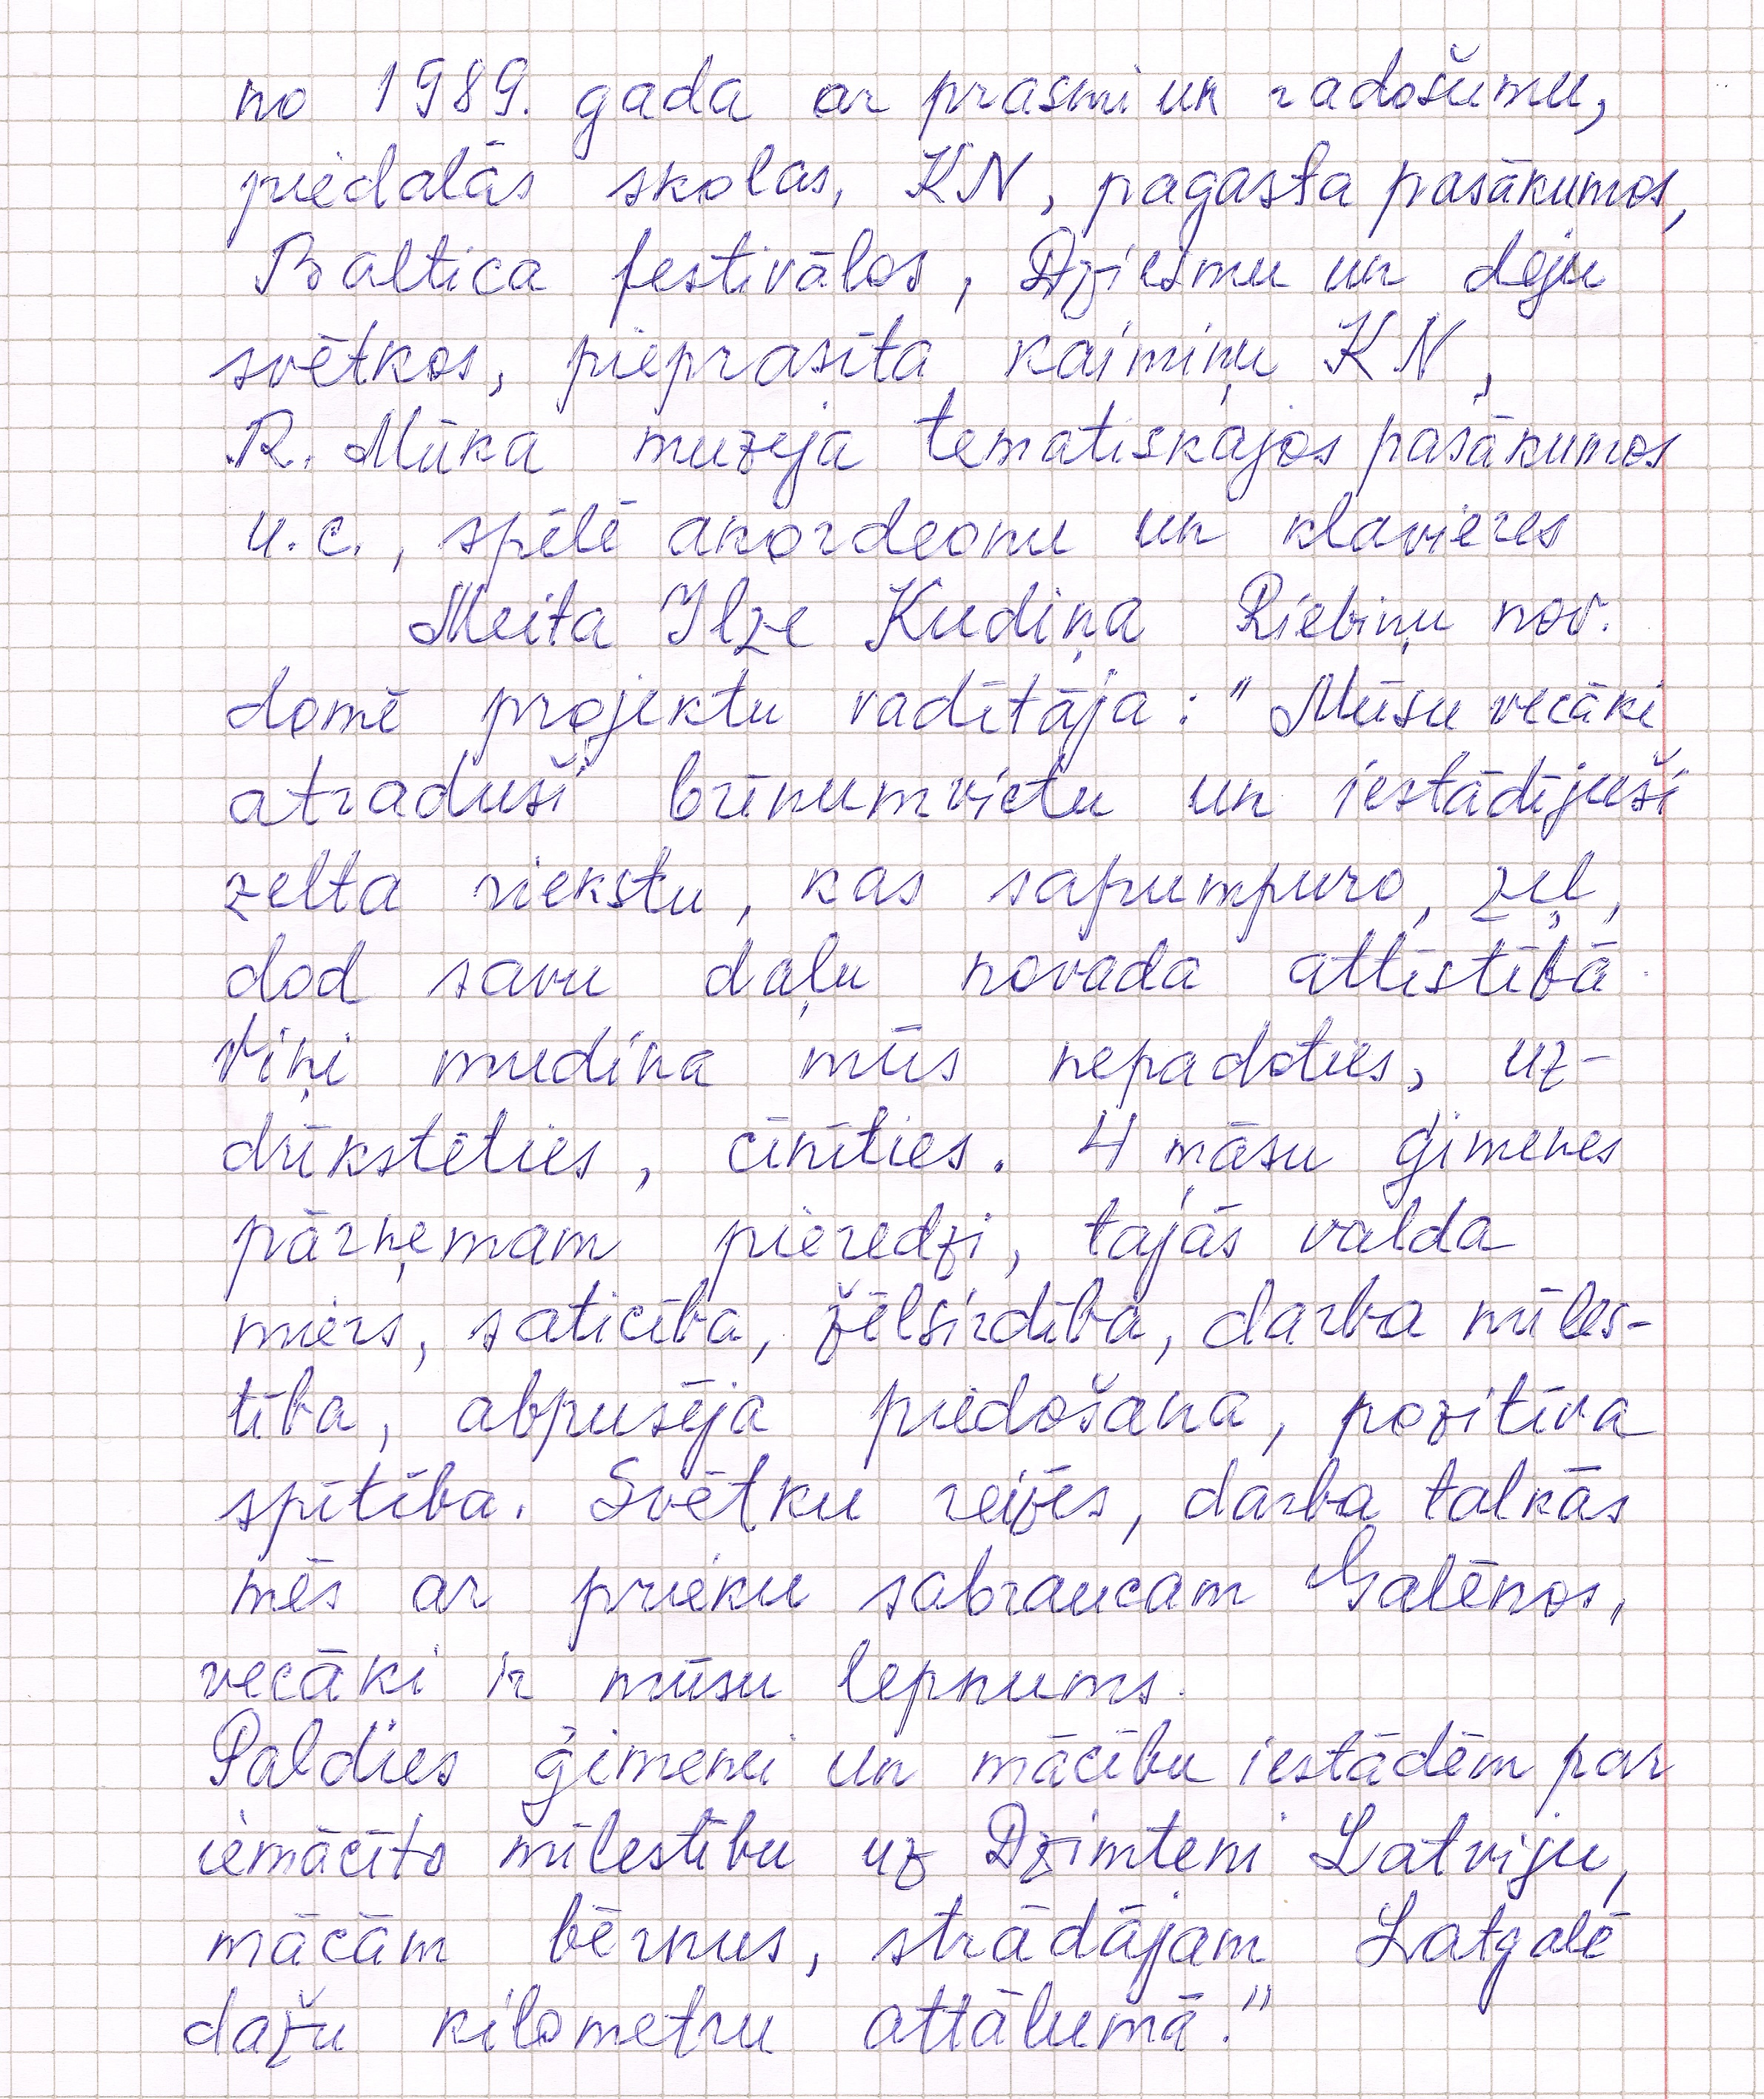 no 1989. gada ar prasmi un radošumu,
piedalās skolas, KN, pagasta pasākumos,
Baltica festivālos, Dziesmu un deju
svētkos, pieprasīta kaimiņu KN,
R. Mūka muzeja tematiskajos pasākumos
u.c., spēlē akordeonu un klavieres
Meita Ilze Kudiņa Riebiņu nov.
domē projektu vadītāja: "Mūsu vecāki
atraduši brīnumvietu un iestādījuši
zelta riekstu, kas sapumpuro, zeļ,
dod savu daļu novada attīstībā.
Viņi mudina mūs nepadoties, uz-
drīkstēties, cīnīties. 4 māsu ģimenes
pārņemam pieredzi, tajās valda
miers, saticība, žēlsirdība, darba mīles-
tība, abpusēja piedošana, pozitīva
spītība. Svētku reizēs, darba talkās
mēs ar prieku sabraucam Galēnos,
vecāki ir mūsu lepnums.
Paldies ģimenei un mācību iestādēm par
iemācīto mīlestību uz Dzimteni Latviju,
mācām bērnus, strādājam Latgalē
dažu kilometru attālumā."